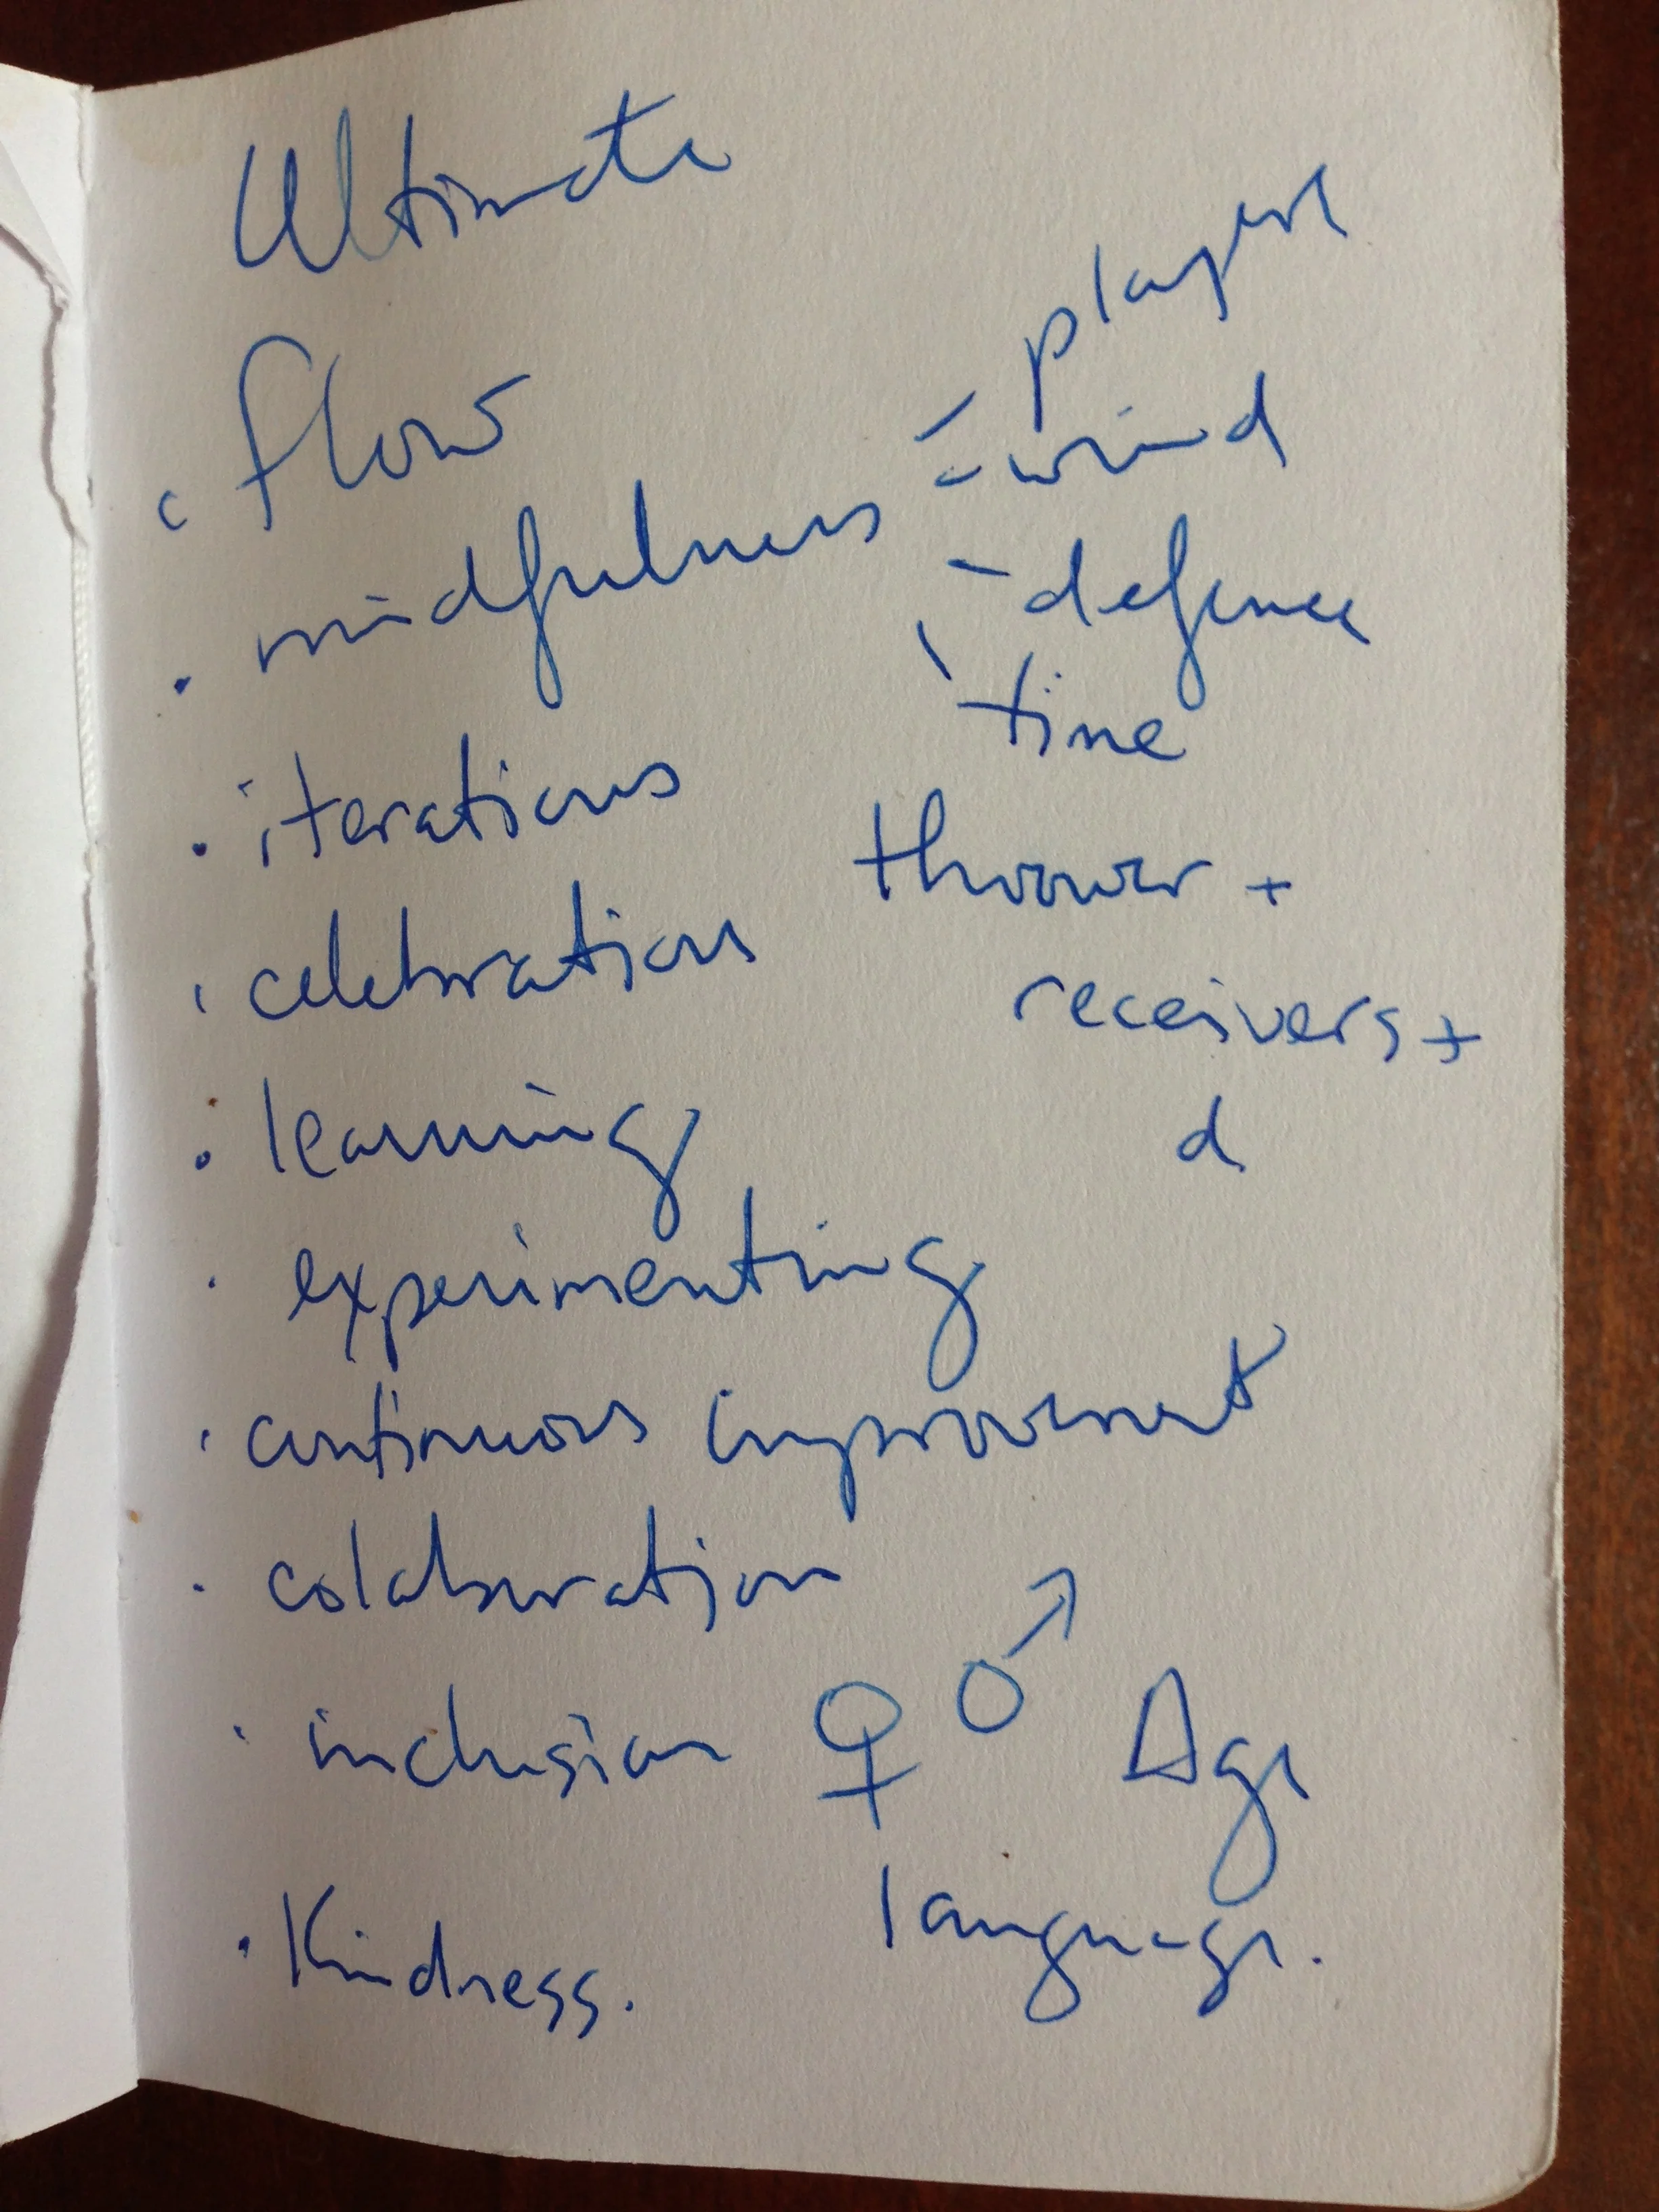 Ultimate
· flow
· mindfulness
- players
- wind
- defence
\ time
· iterations
· celebrations
thrower +
receivers +
d
· learning
· experimenting
· continuous improvement
· colaboration
· inclusion ♀ ♂ Age
language.
· Kindness.